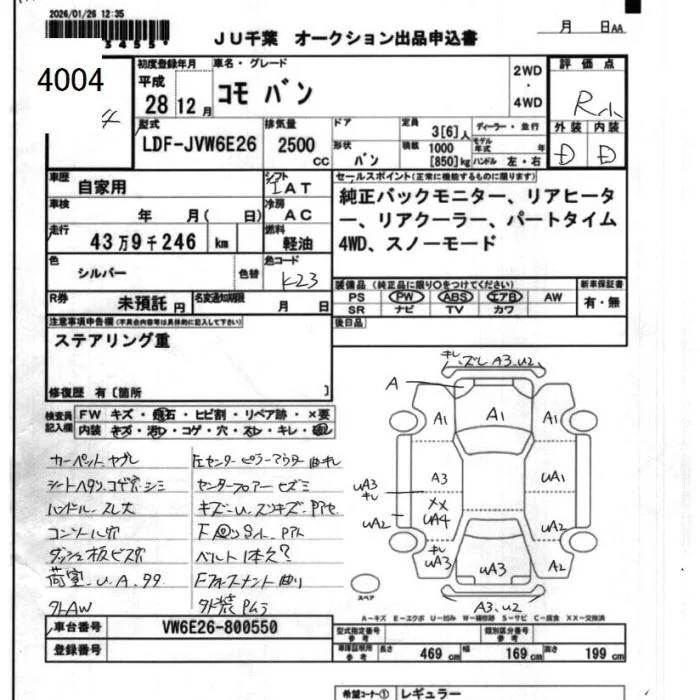 2026/01/26 12:35
3455
JU千葉 オークション出品申込書
月 日AA
4004
初度登録年月
平成
28 12月
車名・グレード
コモ バン
2WD
・
4WD
評価点
外装 内装
D D
型式
LDF-JVW6E26
排気量
2500
cc
ドア
形状
バン
定員
3[6]人
積載
1000
[850]kg
ディーラー・並行
モデル年式 年
ハンドル 左・右
車歴
自家用
シフト
IAT
車検
年 月( 日)
冷房
AC
走行
43万9千246 km
燃料
軽油
色
シルバー
色替
色コード
K23
R券
未預託 円
名変通知期限
月 日
セールスポイント(正常に機能するものに限ります)
純正バックモニター、リアヒータ
ー、リアクーラー、パートタイム
4WD、スノーモード
装備品 (純正品に限り○をつけてください)
PS PW ABS エアB AW
SR ナビ TV カワ
新車保証書
有・無
後日品
注意事項申告欄(不具合内容等は具体的に記入して下さい)
ステアリング重
修復歴 有〔箇所 〕
検査員
記入欄
FW キズ・飛石・ヒビ割・リペア跡・×要
内装 キズ・汚レ・コゲ・穴・スレ・キレ・
カーペットヤブレ
シートヘタリ、コゲ穴、シミ
ハンドル、スレ大
コンソール穴
ダッシュ板ビス穴
荷室、U、A、99
外AW
左センターピラーアウター曲キレ
センターフロアーヒズミ
ベルト1本欠?
キレ ズレ A3、U2
A
A1
A1
A1
A3
UA1
UA3
キレ
XX
UA4
UA2
UA2
キレ
UA3
UA3
A2
A3、U2
スペア
A-キズ E-エクボ U-凹み W-補修跡 S-サビ C-腐食 XX-交換済
車台番号
VW6E26-800550
登録番号
型式指定番号
参考
類別区分番号
参考
車庫証明用
参考
長さ 469 cm 幅 169 cm 高さ 199 cm
希望コーナー① レギュラー